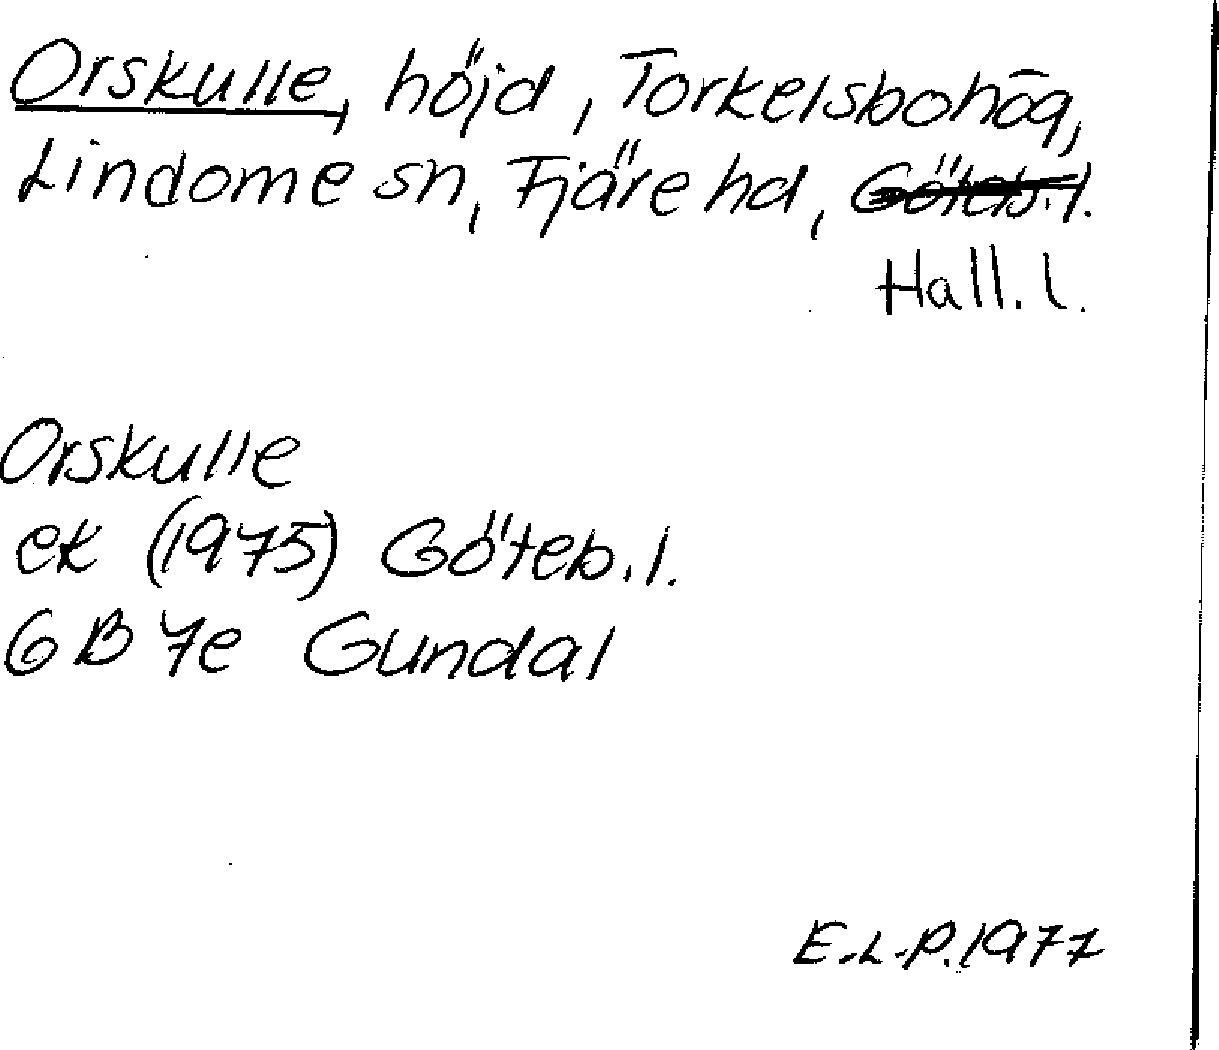 Orskulle, höjd, Torkelsbohög,
Lindome sn, Fjäre hd, Göteb.l.
Hall. l.
Orskulle
ek (1975) Göteb.l.
6 B 7e Gundal
E.L.P. 1977